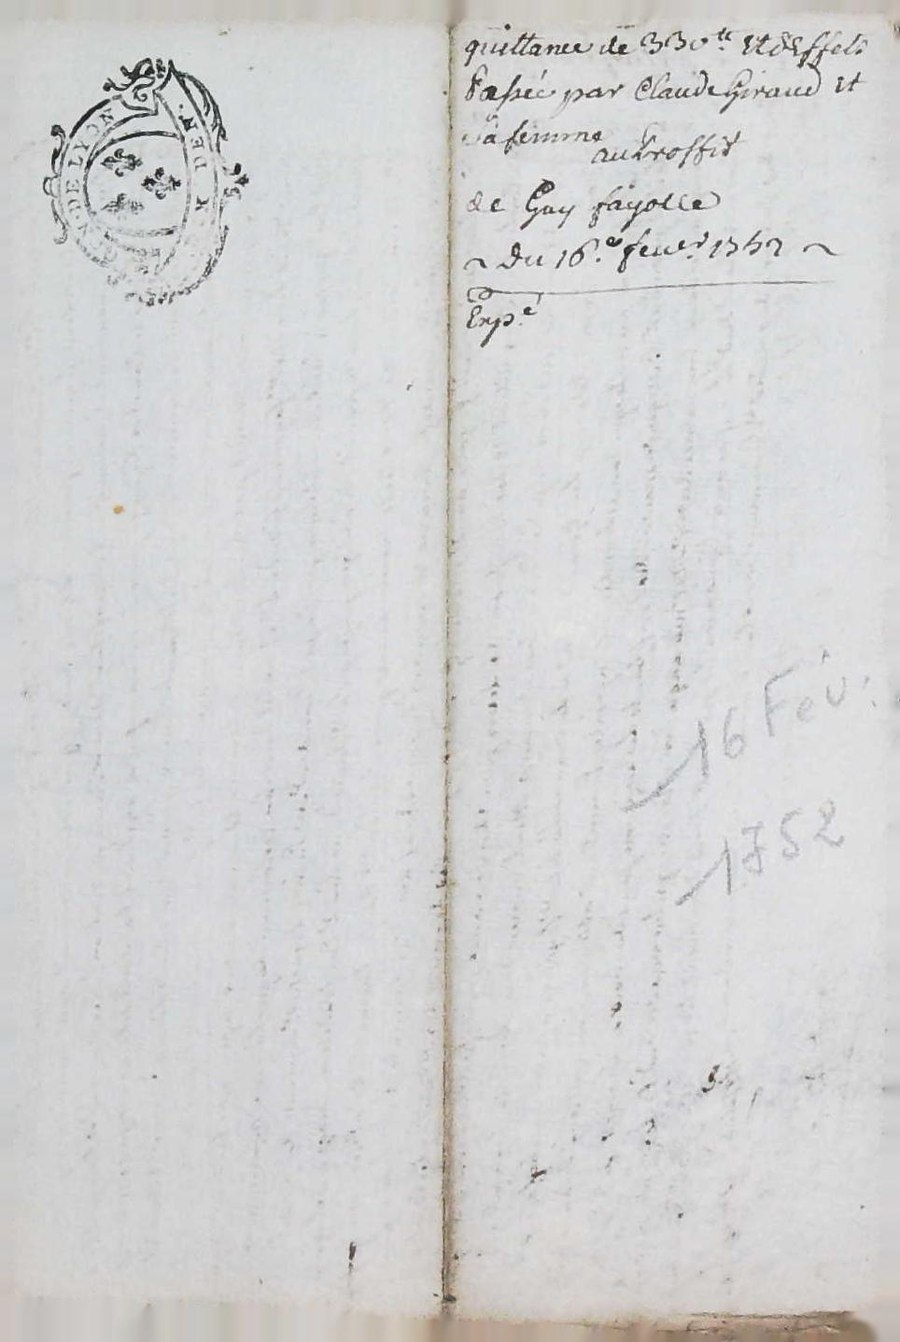 GEN. DE LYON
DEN
quittance de 330tt Et d'Effets
Passée par Claude Giraud Et
Sa femme
au Proffit
de Guy fayolle
~ Du 16.e feuer 1752 ~
Exp.é
16 Fév.
1752